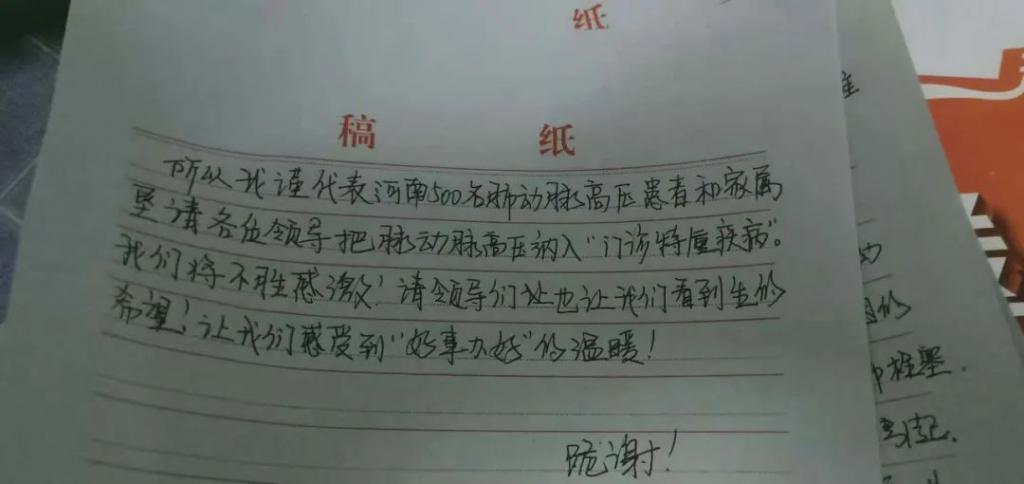 纸
稿 纸
所以我谨代表河南500名肺动脉高压患者和家属
恳请各位领导把肺动脉高压纳入“门诊特重疾病”。
我们将不胜感激！请领导们让也让我们看到生的
希望！让我们感受到“好事办好”的温暖！
跪谢！